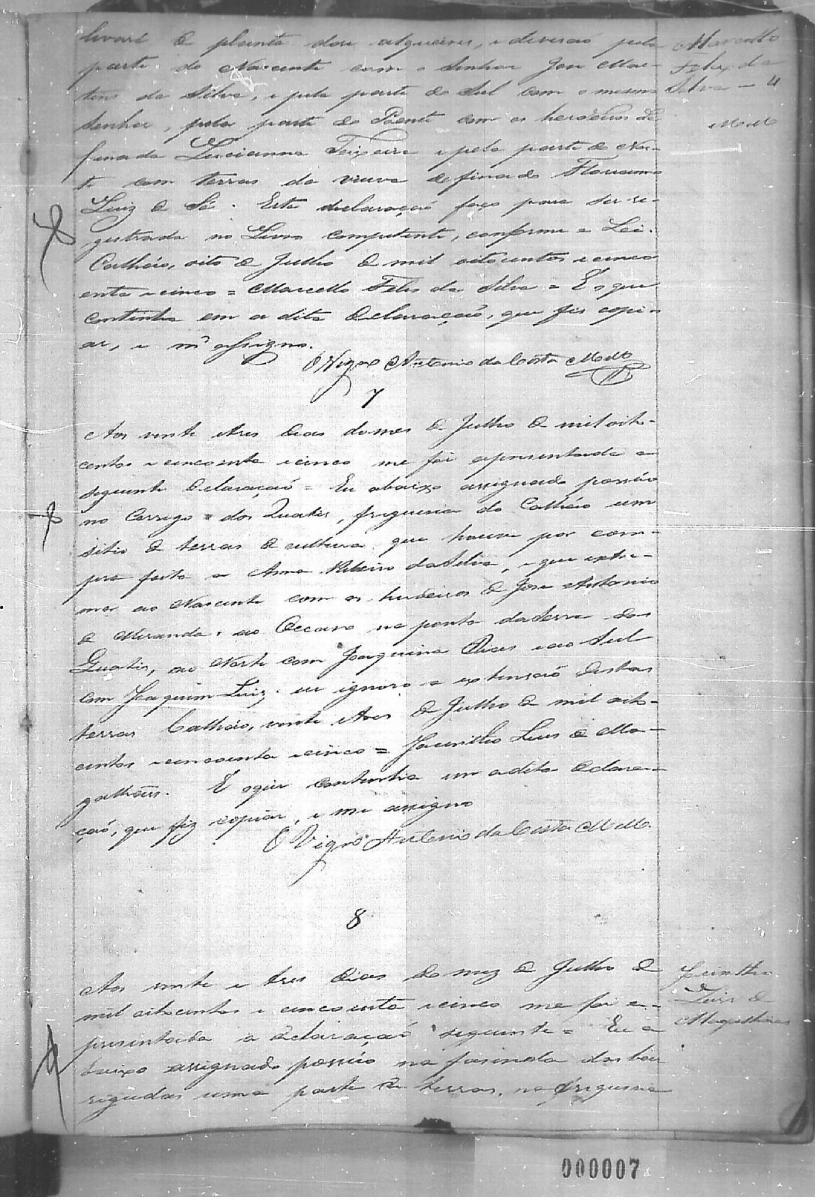 levará de planta dou alqueires, e devisaó pela
parte do Nascente com o Senhor Jose Mar-
tins da Silva, e pela parte do Sul com o mesmo
Senhor, pela parte do Poente com os herdeiros da
finada Lucianna Teixeira e pela parte do Nor-
te com terras da viuva do finado
Luiz de Sá. Esta declaração faço para ser re-
gistrada no Livro competente, conforme a Lei.
Calháo, oito de Julho de mil oitocentos e cinco
enta e cinco = Marcello Felis da Silva = E o que
continha em a dita declaração, que fis copi-
ar, e m'assigno.
O Vigro Antonio da Costa Mello
7
Aos vinte e tres dias do mes de Julho de mil oito-
centos e cincoenta e cinco me foi apresentada a
seguinte declaração = Eu abaixo assignado possúo
no Corrigo = dos Quatis, friguesia do Calháo um
sitio de terras de cultura que houve por com-
pra feita a Anna Ribeiro da Silva, e que extre-
ma ao Nascente com os herdeiros de Jose Antonio
de Miranda, ao Occaso na ponta da serra dos
Quatis, ao Norte com Joaquina Dias e ao Sul
com Joaquim Luiz. eu ignoro a extensaó destas
terras Calháo, vinte e tres de Julho de mil oito-
centos e cincoenta e cinco = Jacintho Luis de Ma-
galháis. E o que continha em a dita declara-
çaó, que fiz copiar, e me assigno
O Vigro Antonio da Costa Mello.
8
Aos vinte e tres dias do mez de Julho de
mil oitocentos e cincoenta e cinco me foi a-
presentada a declaraçaó seguinte = Eu a-
baixo assignado possúo na fasenda dos
uma parte de terras, na friguesia
Marcello
Felix da
Silva — 4
Mello
Jacintho
Luis de
Magalhaes
000007